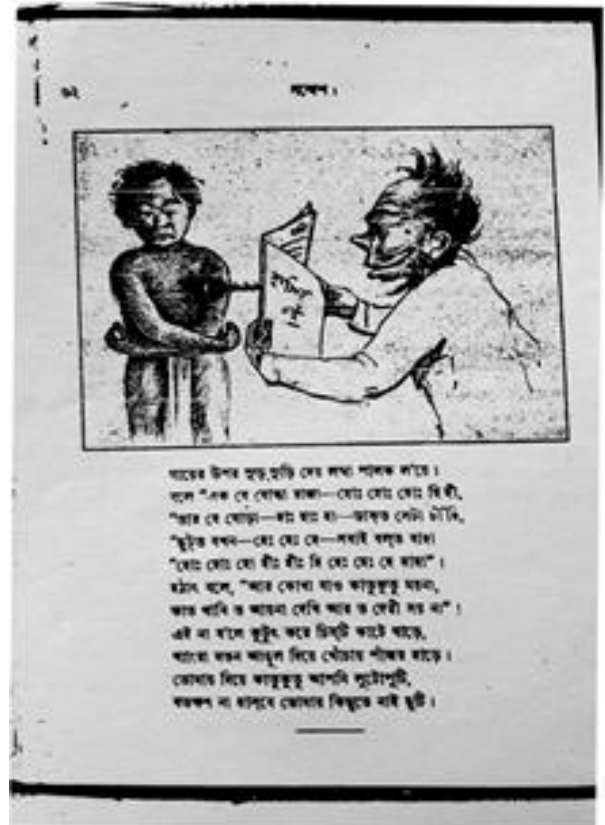 ৬২
সন্দেশ।
গায়ের উপর সুড়্‌সুড়ি দেয় লম্বা পালক ল'য়ে।
বলে "এক যে রাজা—হোঃ হোঃ হোঃ হি হী,
"তার যে ঘোড়া—হাঃ হাঃ হা—ডাক্‌ত সেটা চীঁহি,
"ছুট্‌ত যখন—হেঃ হেঃ হে—সবাই বল্‌ত বাহা
"হোঃ হোঃ হো হীঃ হীঃ হি হেঃ হেঃ হে হাহা"।
হঠাৎ বলে, "আর কোথা যাও কাতুকুতু ময়না,
কাত খাবি ত আয়না দেখি আর ত দেরী সয় না"!
এই না ব'লে কুটুৎ করে চিম্‌টি কাটে ঘাড়ে,
খ্যাংরা মতন আঙুল দিয়ে খোঁচায় পাঁজর হাড়ে।
তোমায় দিয়ে কাতুকুতু আপনি লুটোপুটি,
যতক্ষণ না হাসবে তোমার কিছুতে নাই ছুটি।